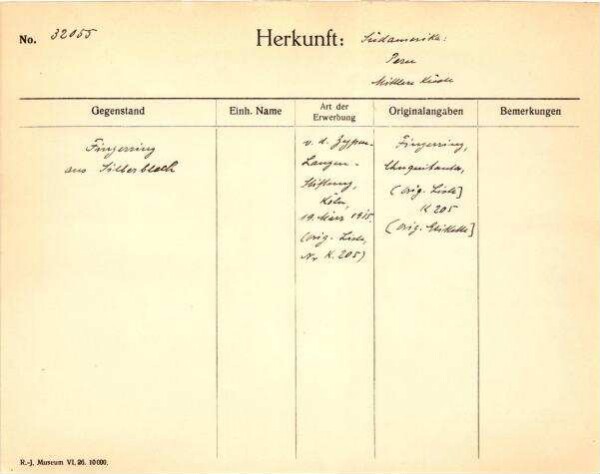 No. 32055
Herkunft: Südamerika:
Peru
Mittlere Küste
Gegenstand
Einh. Name
Art der
Erwerbung
Originalangaben
Bemerkungen
Fingerring
aus Silberblech
v. d. Zypen-
Langen-
Stiftung,
Köln,
19. März 1915
(orig. Liste,
Nr K. 205)
Fingerring,
Chuquitanta,
(orig. Liste]
K 205
(orig. Etikette]
R.-J. Museum VI. 26. 10000.